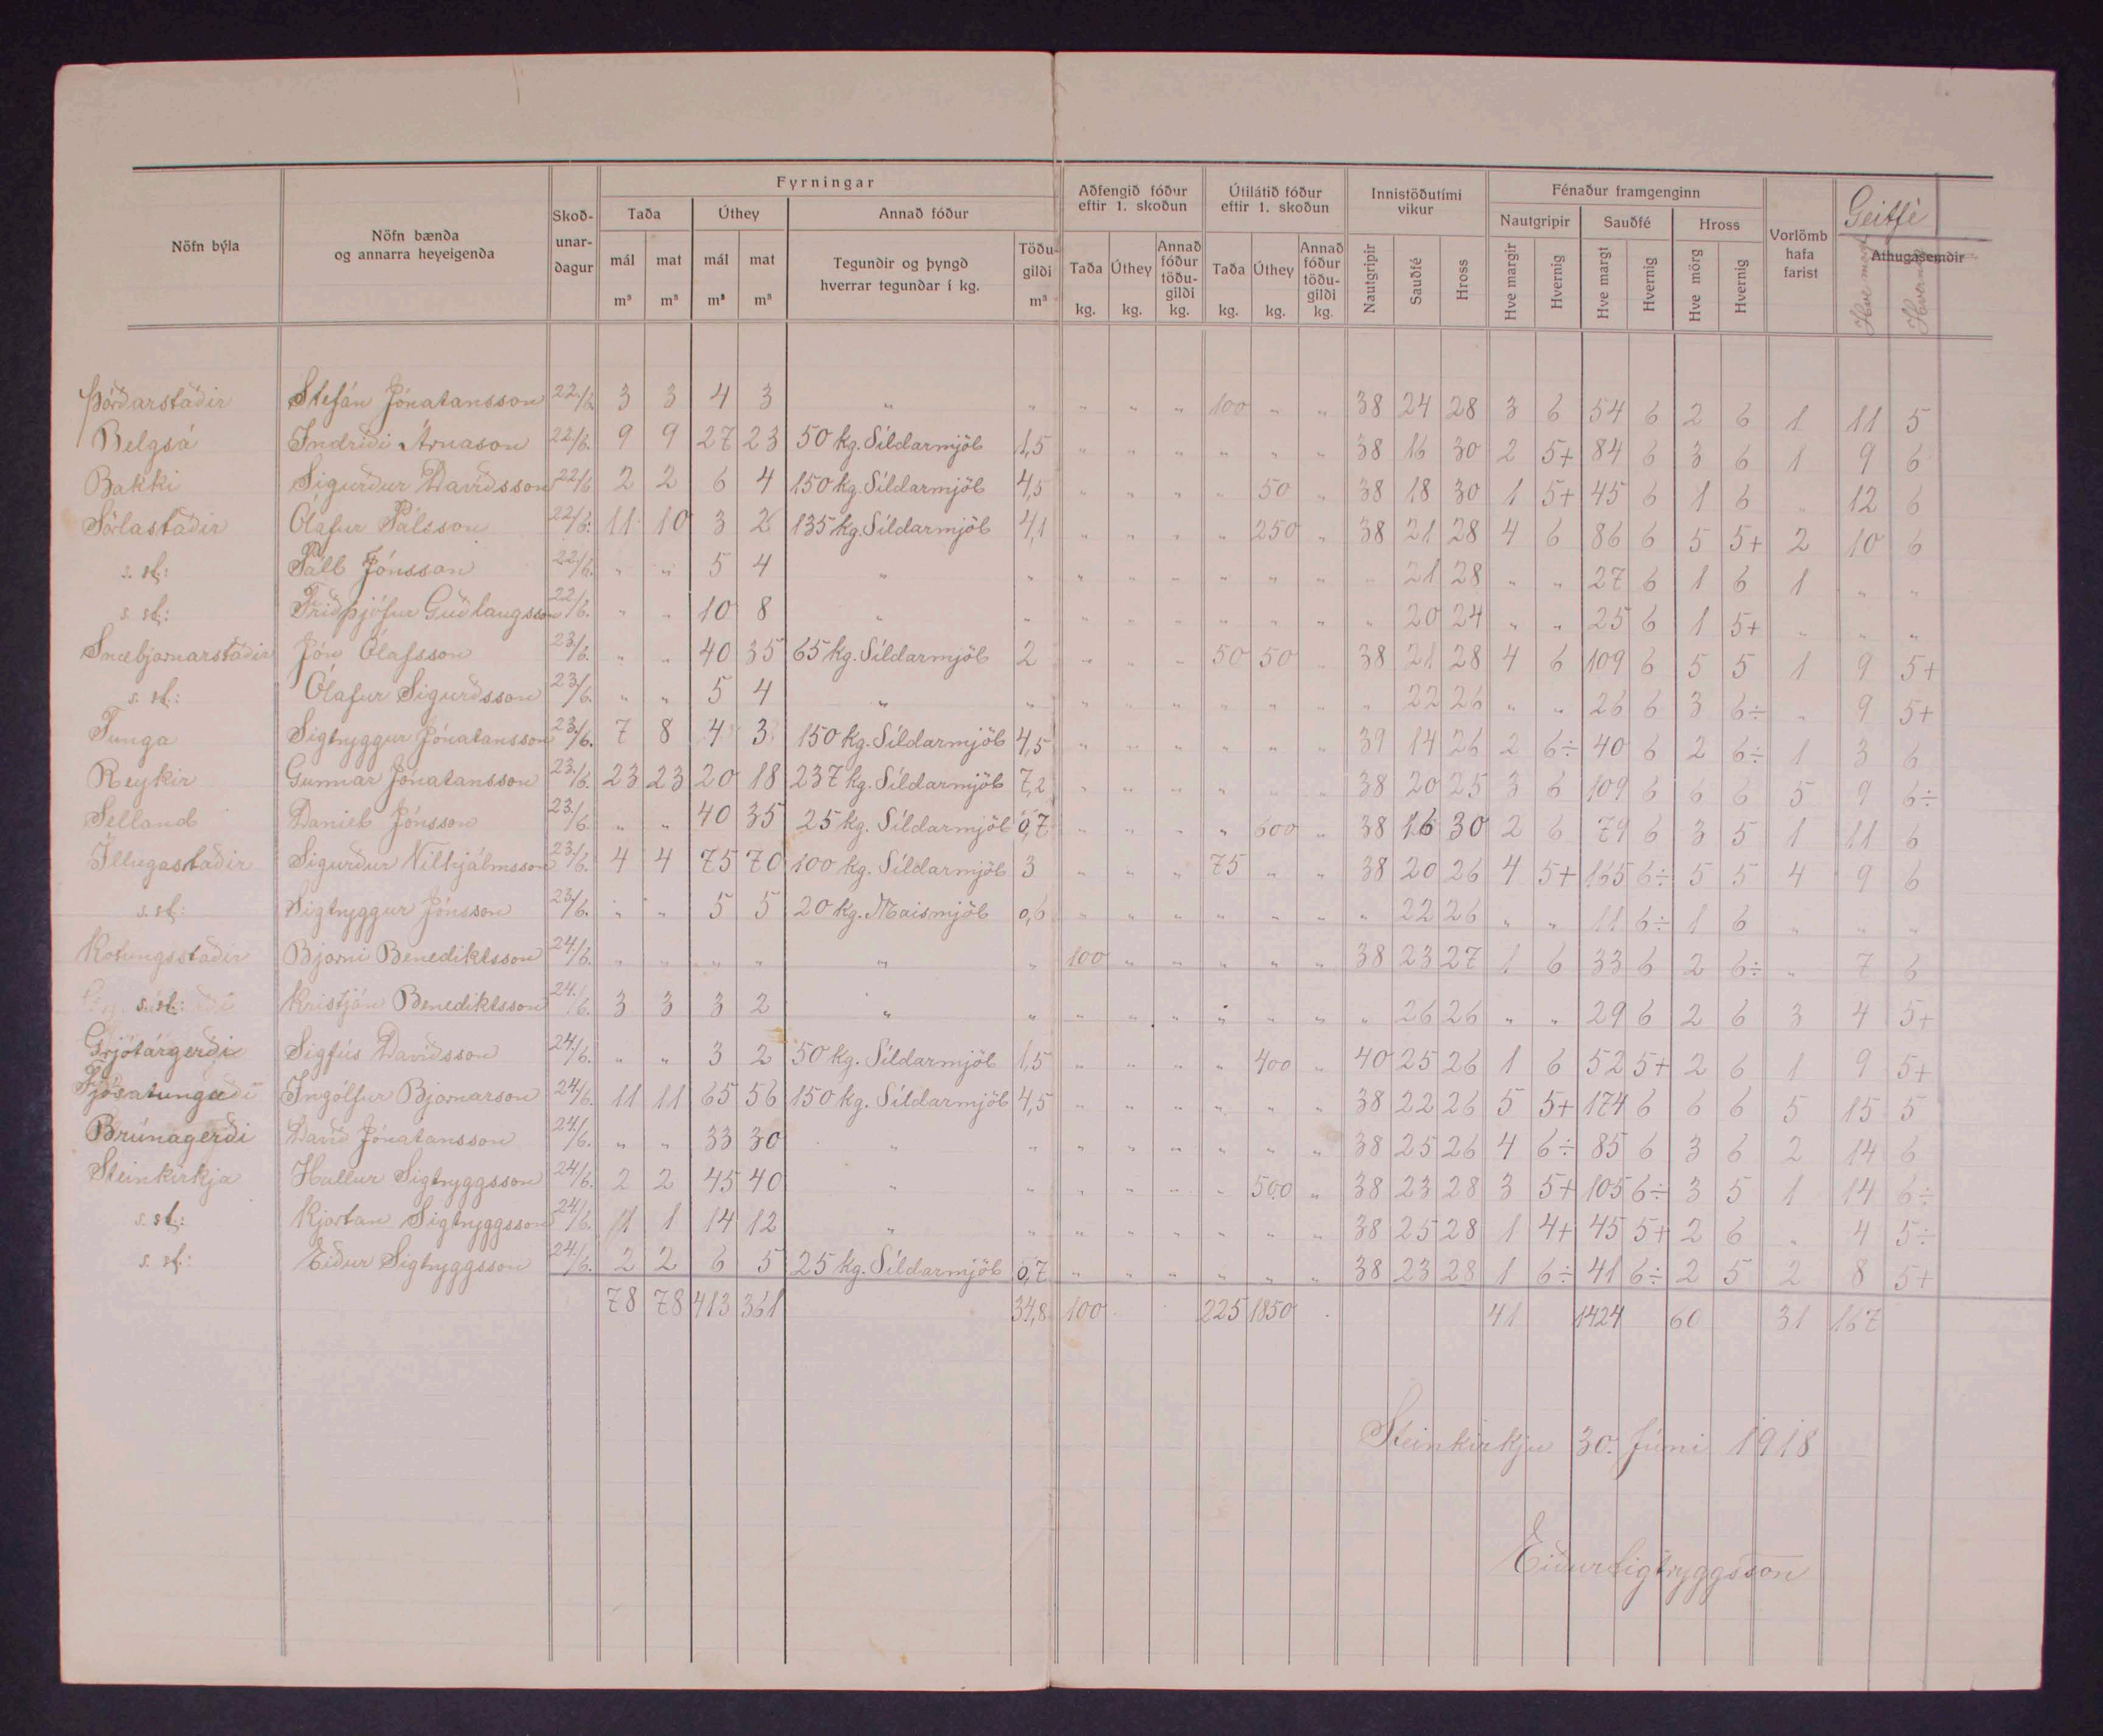 Nöfn býla | Nöfn bænda og annarra heyeigenda | Skoð-unar-dagur | Fyrningar | Aðfengið fóður eftir 1. skoðun | Útilátið fóður eftir 1. skoðun | Innistöðutími vikur | Fénaður framgenginn | Vorlömb hafa farist | Geitfé
Taða | Úthey | Annað fóður | Nautgripir | Sauðfé | Hross | Athugasemdir
mál m³ | mat m³ | mál m³ | mat m³ | Tegundir og þyngd hverrar tegundar í kg. | Töðu-gildi m³ | Taða kg. | Úthey kg. | Annað fóður töðu-gildi kg. | Taða kg. | Úthey kg. | Annað fóður töðu-gildi kg. | Nautgripir | Sauðfé | Hross | Hve margir | Hvernig | Hve margt | Hvernig | Hve mörg | Hvernig | Hve margt | Hvernig
Þórðarstaðir | Stefán Jónatansson | 22/6 | 3 | 3 | 4 | 3 | " | " | " | " | " | 100 | " | " | 38 | 24 | 28 | 3 | 6 | 54 | 6 | 2 | 6 | 1 | 11 | 5
Belgsá | Indriði Árnason | 22/6. | 9 | 9 | 27 | 23 | 50 kg. Síldarmjöl | 1,5 | " | " | " | " | " | " | 38 | 16 | 30 | 2 | 5+ | 84 | 6 | 3 | 6 | 1 | 9 | 6
Bakki | Sigurður Davíðsson | 22/6 | 2 | 2 | 6 | 4 | 150 kg. Síldarmjöl | 4,5 | " | " | " | " | 50 | " | 38 | 18 | 30 | 1 | 5+ | 45 | 6 | 1 | 6 | " | 12 | 6
Sörlastaðir | Ólafur Pálsson | 22/6. | 11 | 10 | 3 | 2 | 135 kg. Síldarmjöl | 4,1 | " | " | " | " | 250 | " | 38 | 21 | 28 | 4 | 6 | 86 | 6 | 5 | 5+ | 2 | 10 | 6
s. st: | Páll Jónsson | 22/6. | " | " | 5 | 4 | " | " | " | " | " | " | " | " | " | 21 | 28 | " | " | 27 | 6 | 1 | 6 | 1 | " | "
s. st: | Friðþjófur Guðlaugsson | 22/6. | " | " | 10 | 8 | " | " | " | " | " | " | " | " | " | 20 | 24 | " | " | 25 | 6 | 1 | 5+ | " | " | "
Snæbjarnarstaðir | Jón Ólafsson | 23/6. | " | " | 40 | 35 | 65 kg. Síldarmjöl | 2 | " | " | " | 50 | 50 | " | 38 | 21 | 28 | 4 | 6 | 109 | 6 | 5 | 5 | 1 | 9 | 5+
s. st: | Ólafur Sigurðsson | 23/6. | " | " | 5 | 4 | " | " | " | " | " | " | " | " | " | 22 | 26 | " | " | 26 | 6 | 3 | 6÷ | " | 9 | 5+
Tunga | Sigtryggur Jónatansson | 23/6. | 7 | 8 | 4 | 3 | 150 kg. Síldarmjöl | 4,5 | " | " | " | " | " | " | 39 | 14 | 26 | 2 | 6÷ | 40 | 6 | 2 | 6÷ | 1 | 3 | 6
Reykir | Gunnar Jónatansson | 23/6. | 23 | 23 | 20 | 18 | 237 kg. Síldarmjöl | 7,2 | " | " | " | " | " | " | 38 | 20 | 25 | 3 | 6 | 109 | 6 | 6 | 6 | 5 | 9 | 6÷
Selland | Daníel Jónsson | 23/6. | " | " | 40 | 35 | 25 kg. Síldarmjöl | 0,7 | " | " | " | " | 600 | " | 38 | 16 | 30 | 2 | 6 | 79 | 6 | 3 | 5 | 1 | 11 | 6
Illugastaðir | Sigurður Vilhjálmsson | 23/6. | 4 | 4 | 75 | 70 | 100 kg. Síldarmjöl | 3 | " | " | " | 75 | " | " | 38 | 20 | 26 | 4 | 5+ | 165 | 6÷ | 5 | 5 | 4 | 9 | 6
s. st: | Sigtryggur Jónsson | 23/6. | " | " | 5 | 5 | 20 kg. Maismjöl | 0,6 | " | " | " | " | " | " | " | 22 | 26 | " | " | 11 | 6÷ | 1 | 6 | " | " | "
Kotungsstaðir | Bjarni Benediktsson | 24/6. | " | " | " | " | " | " | 100 | " | " | " | " | " | 38 | 23 | 27 | 1 | 6 | 33 | 6 | 2 | 6÷ | " | 7 | 6
s. st: | Kristján Benediktsson | 24/6. | 3 | 3 | 3 | 2 | " | " | " | " | " | " | " | " | " | 26 | 26 | " | " | 29 | 6 | 2 | 6 | 3 | 4 | 5+
Grjótárgerði | Sigfús Davíðsson | 24/6. | " | " | 3 | 2 | 50 kg. Síldarmjöl | 1,5 | " | " | " | " | 400 | " | 40 | 25 | 26 | 1 | 6 | 52 | 5+ | 2 | 6 | 1 | 9 | 5+
Fjósatunga | Ingólfur Bjarnarson | 24/6. | 11 | 11 | 65 | 56 | 150 kg. Síldarmjöl | 4,5 | " | " | " | " | " | " | 38 | 22 | 26 | 5 | 5+ | 174 | 6 | 6 | 6 | 5 | 15 | 5
Brúnagerði | Davíð Jónatansson | 24/6. | " | " | 33 | 30 | " | " | " | " | " | " | " | " | 38 | 25 | 26 | 4 | 6÷ | 85 | 6 | 3 | 6 | 2 | 14 | 6
Steinkirkja | Hallur Sigtryggsson | 24/6. | 2 | 2 | 45 | 40 | " | " | " | " | " | " | 500 | " | 38 | 23 | 28 | 3 | 5+ | 105 | 6÷ | 3 | 5 | 1 | 14 | 6÷
s. st: | Kjartan Sigtryggsson | 24/6. | 1 | 1 | 14 | 12 | " | " | " | " | " | " | " | " | 38 | 25 | 28 | 1 | 4+ | 45 | 5+ | 2 | 6 | " | 4 | 5÷
s. st: | Eiður Sigtryggsson | 24/6. | 2 | 2 | 6 | 5 | 25 kg. Síldarmjöl | 0,7 | " | " | " | " | " | " | 38 | 23 | 28 | 1 | 6÷ | 41 | 6÷ | 2 | 5 | 2 | 8 | 5+
78 | 78 | 413 | 361 | 34,8 | 100 | 225 | 1850 | 41 | 1424 | 60 | 31 | 167
Steinkirkju 30. Júni 1918
Eiður Sigtryggsson